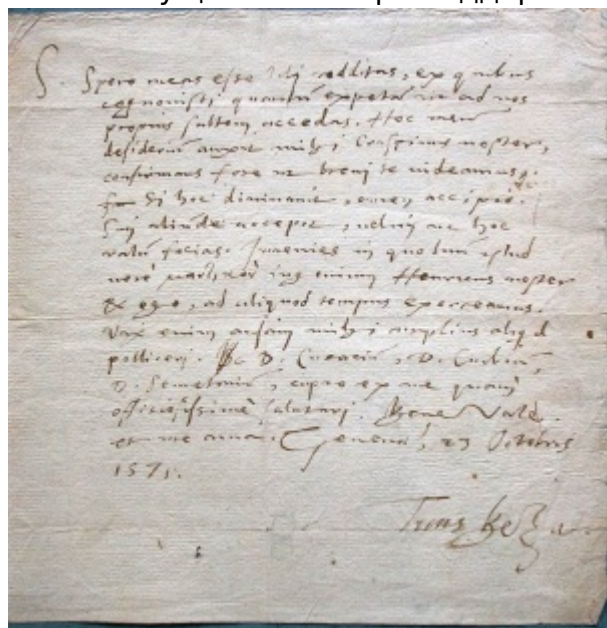 S. Spero meas esse tibi redditas, ex quibus
cognovisti quantum expetam ut ad nos
propius saltem accedas. Hoc meum
desiderium auxit mihi Crispinus noster,
confirmans fore ut breui te uideamus.
Si hoc diuinauit, omen accipio.
Sin aliunde accepit, uelim ut hoc
ratum facias. Inuenies in quo tuum istud
enim Henricus noster
& ego, ad aliquod tempus exerceamus.
Vix enim ausim mihi amplius aliquid
polliceri. D. D.
D. cupio ex me quam
officiosissime salutari. Bene Vale
et me ama. Geneua, 23 Octobris
1571.
Tuus Beza